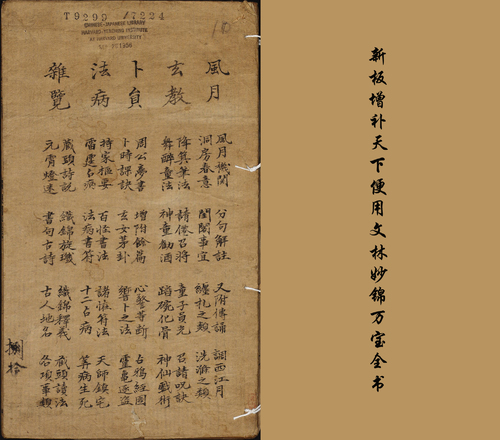 新板增补天下便用文林妙锦万宝全书
T9299 /7224
CHINESE-JAPANESE LIBRARY
HARVARD-YENCHING INSTITUTE
AT HARVARD UNIVERSITY
10
風月
玄教
卜員
法病
雜覽
風月機関 分句解註 又附傳誦 調西江月
洞房春意 閨閫事宜 纏札之類 洗滌之類
降真筆法 請仙召將 童子貞光 召請呪訣
醉童法 神童勧酒 蹈碗化骨 神仙戲術
周公夢書 增附餘篇 心驚等断 占鴉經圖
卜時課訣 玄女茅卦 響卜之法 靈龜逐盗
持家枢要 百怪書法 諸怪符法 天師鎮宅
雷霆占病 法病書符 十二占病 筭病生死
藏頭詩説 織錦旋璣 織錦釋義 藏頭讀法
元宵燈迷 書句古詩 古人地名 各項軍類
捌拾